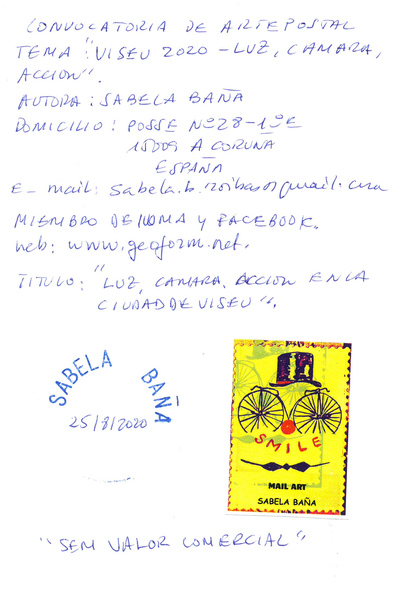 CONVOCATORIA DE ARTEPOSTAL
TEMA "VISEU 2020 - LUZ, CAMARA,
ACCION".
AUTORA: SABELA BAÑA
DOMICILIO: POSSE Nº28-1ºE
15009 A CORUÑA
ESPAÑA
E-mail:
MIEMBRO DE IUOMA y FACEBOOK.
Web: www.geoform.net.
TITULO: "LUZ, CAMARA, ACCION EN LA
CIUDAD DE VISEU".
SABELA BAÑA
25/8/2020
SMILE
MAIL ART
SABELA BAÑA
"SEM VALOR COMERCIAL"